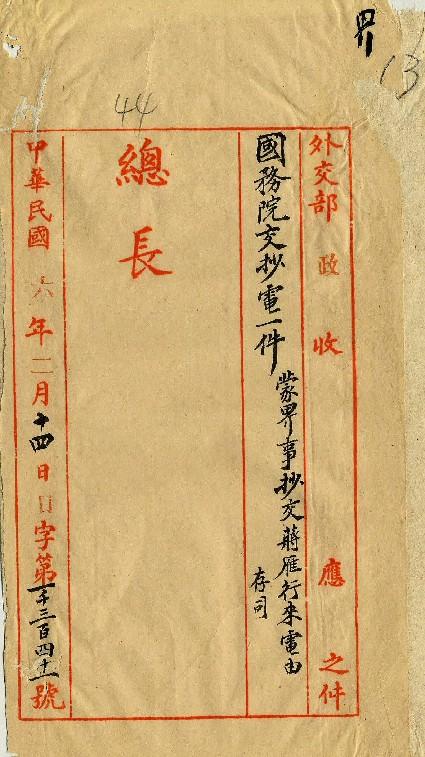 界
13
44
外交部 政 收 應 之件
國務院交抄電一件 蒙界事抄交蔣雁行來電由
存司
總長
中華民國六年二月十四日 字第一千三百四十一號